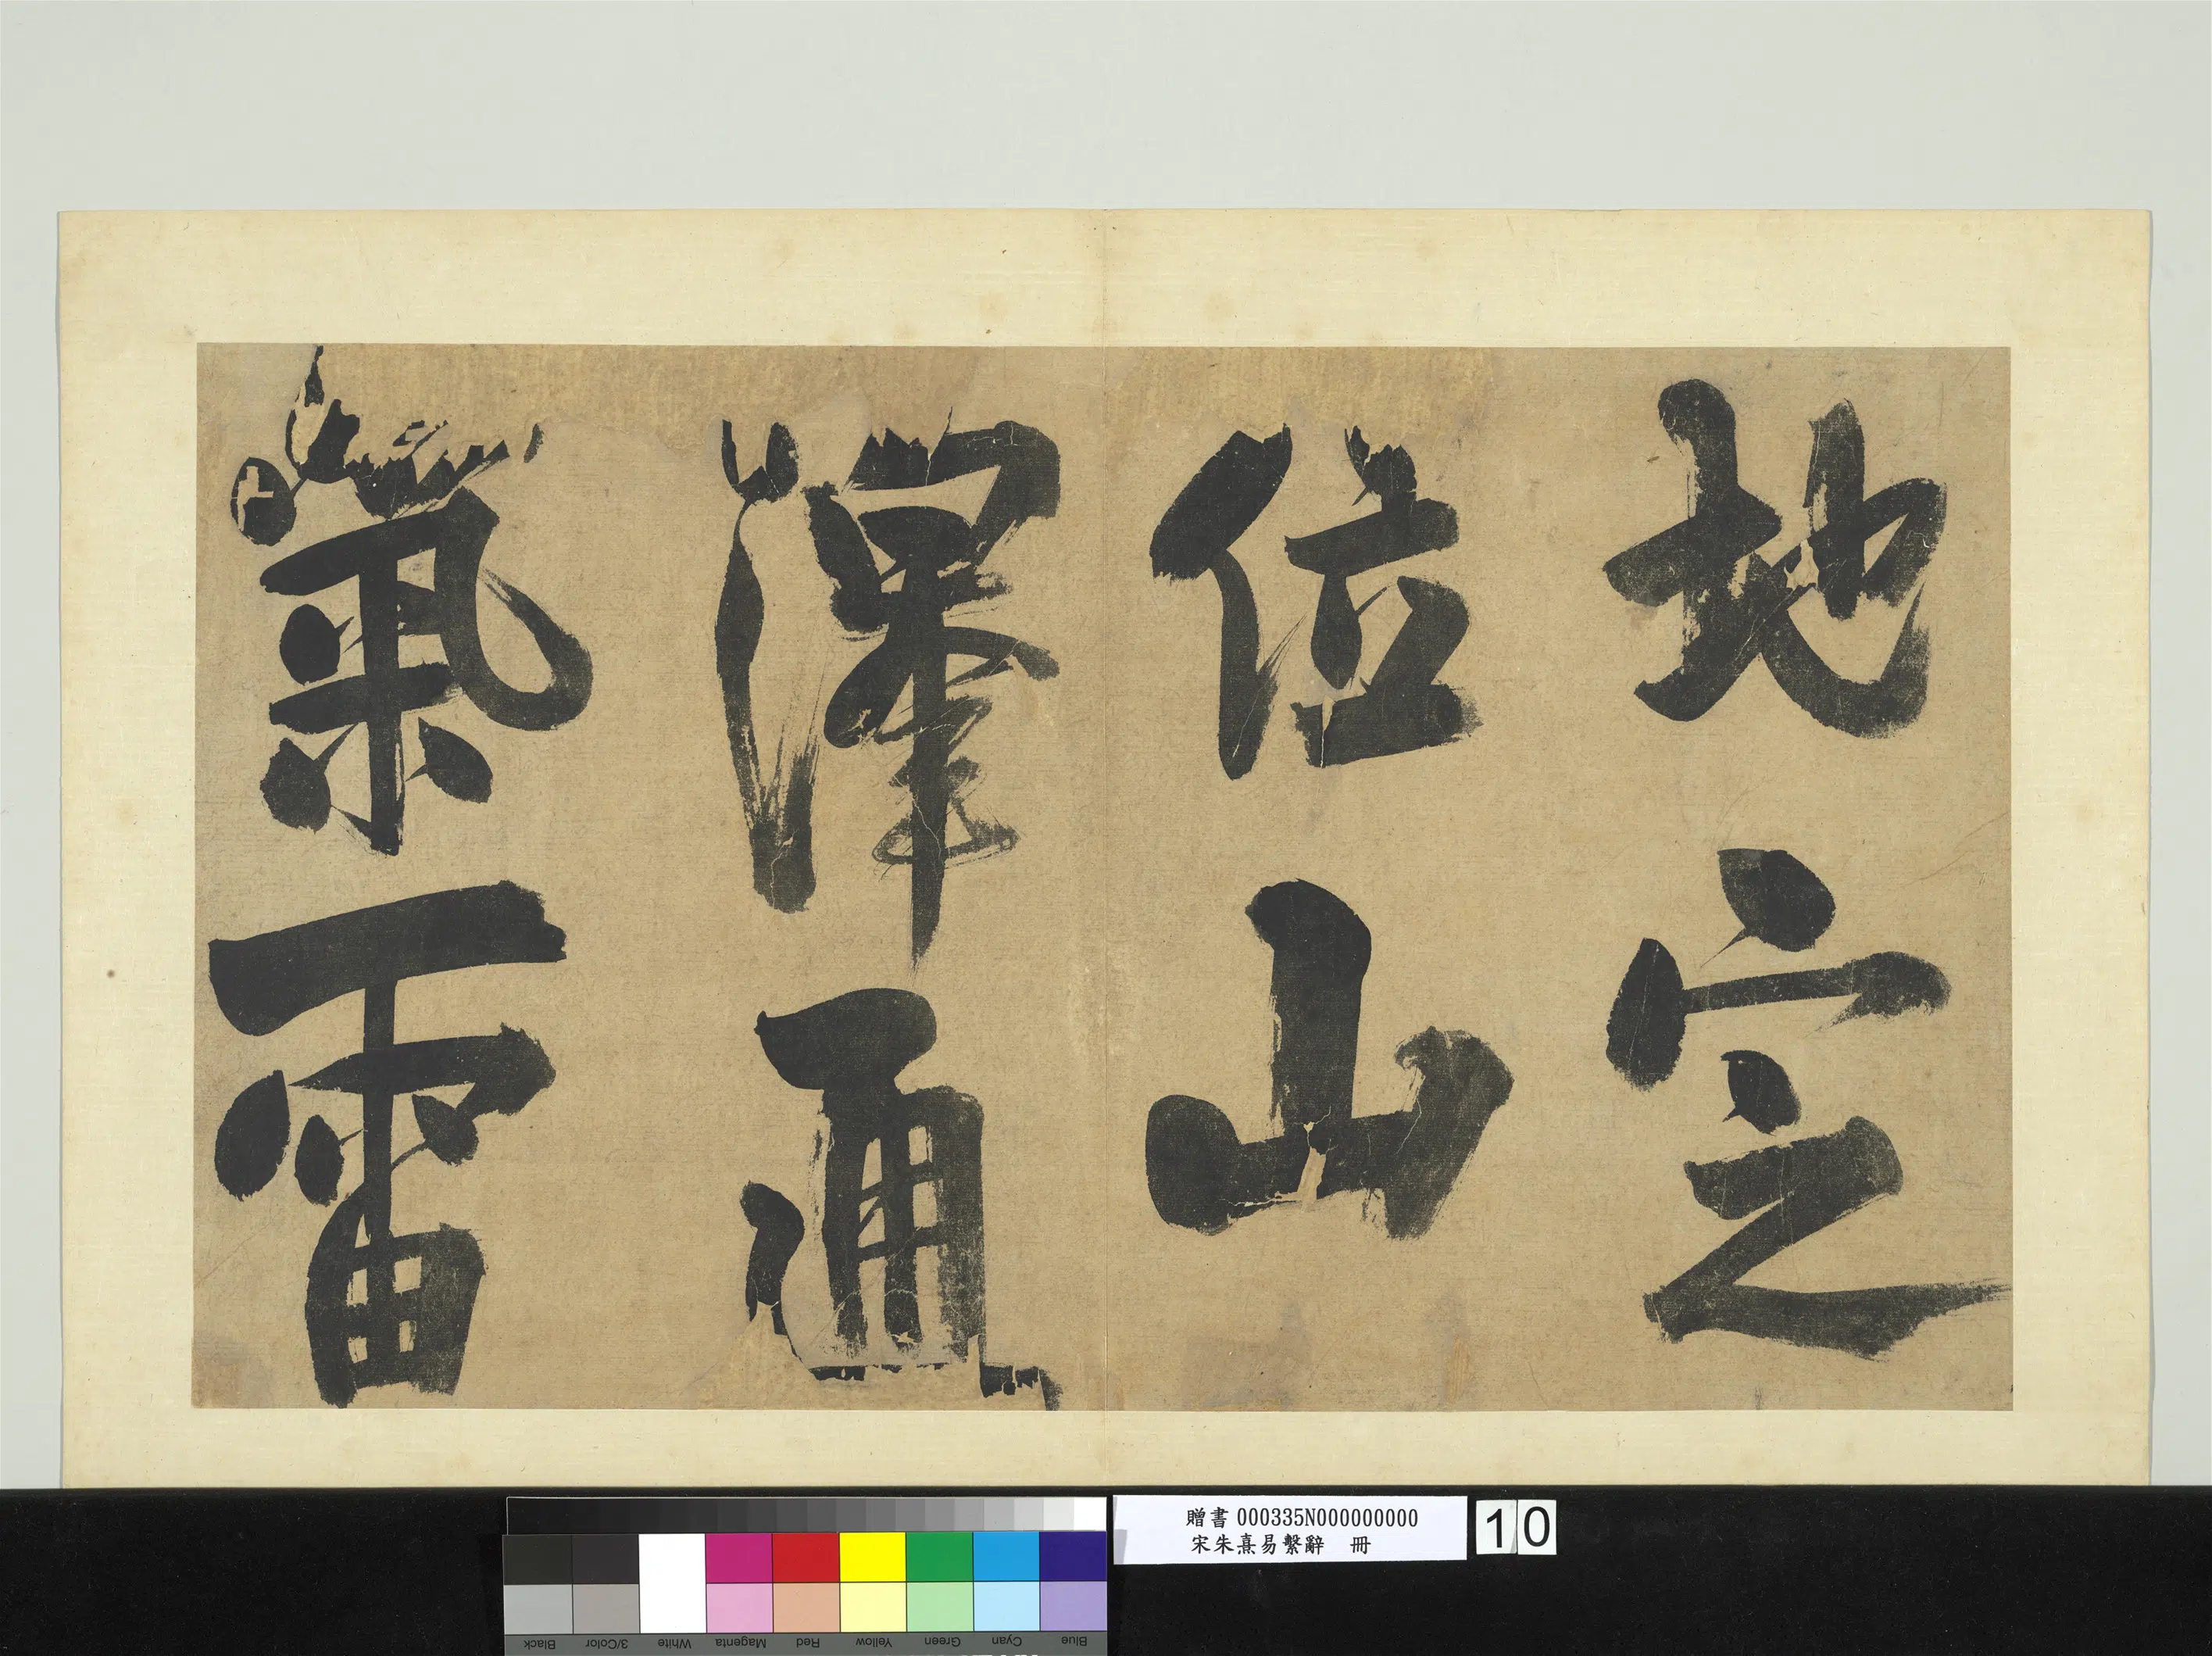 地定
位山
澤通
氣雷
贈書 000335N000000000
宋朱熹易繫辭 冊
10
Black
3/Color
White
Magenta
Red
Yellow
Green
Cyan
Blue